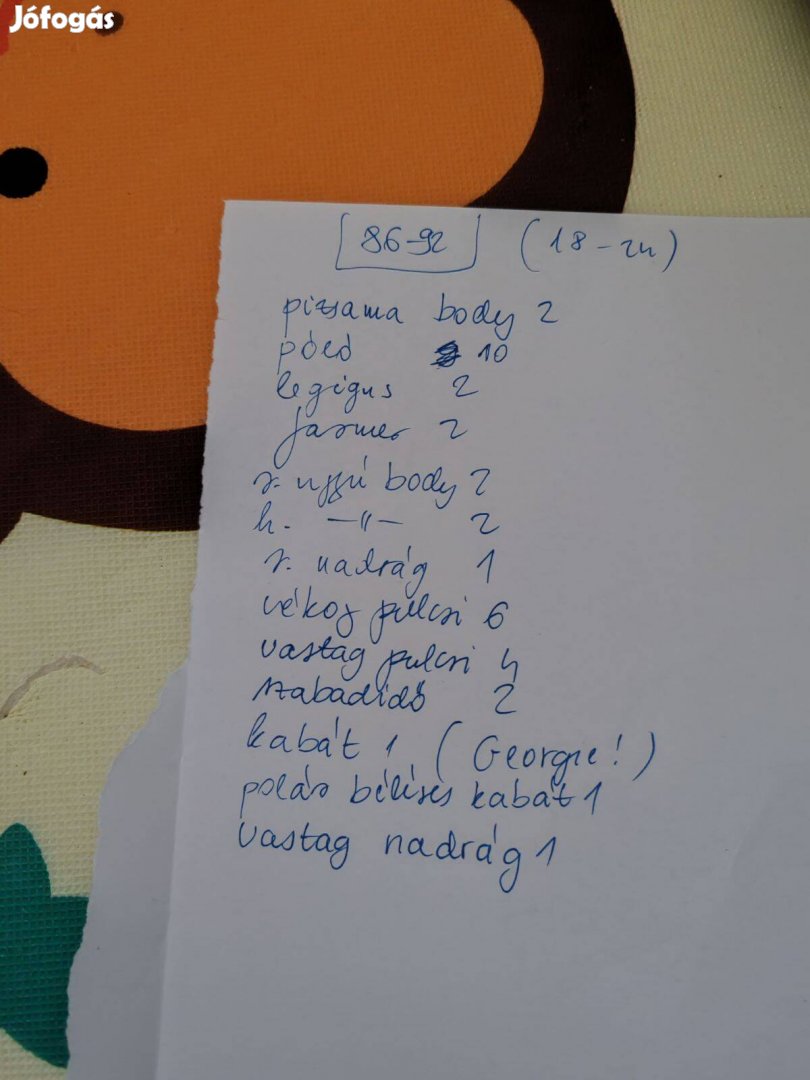 Jófogás
86-92 (18-24)
pizsama body 2
póló 10
legigus 2
farmer 2
r. ujjú body 2
h. -"- 2
r. nadrág 1
vékoy pulcsi 6
vastag pulcsi 4
szabadidő 2
kabát 1 (Georgie!)
polár béléses kabát 1
vastag nadrág 1